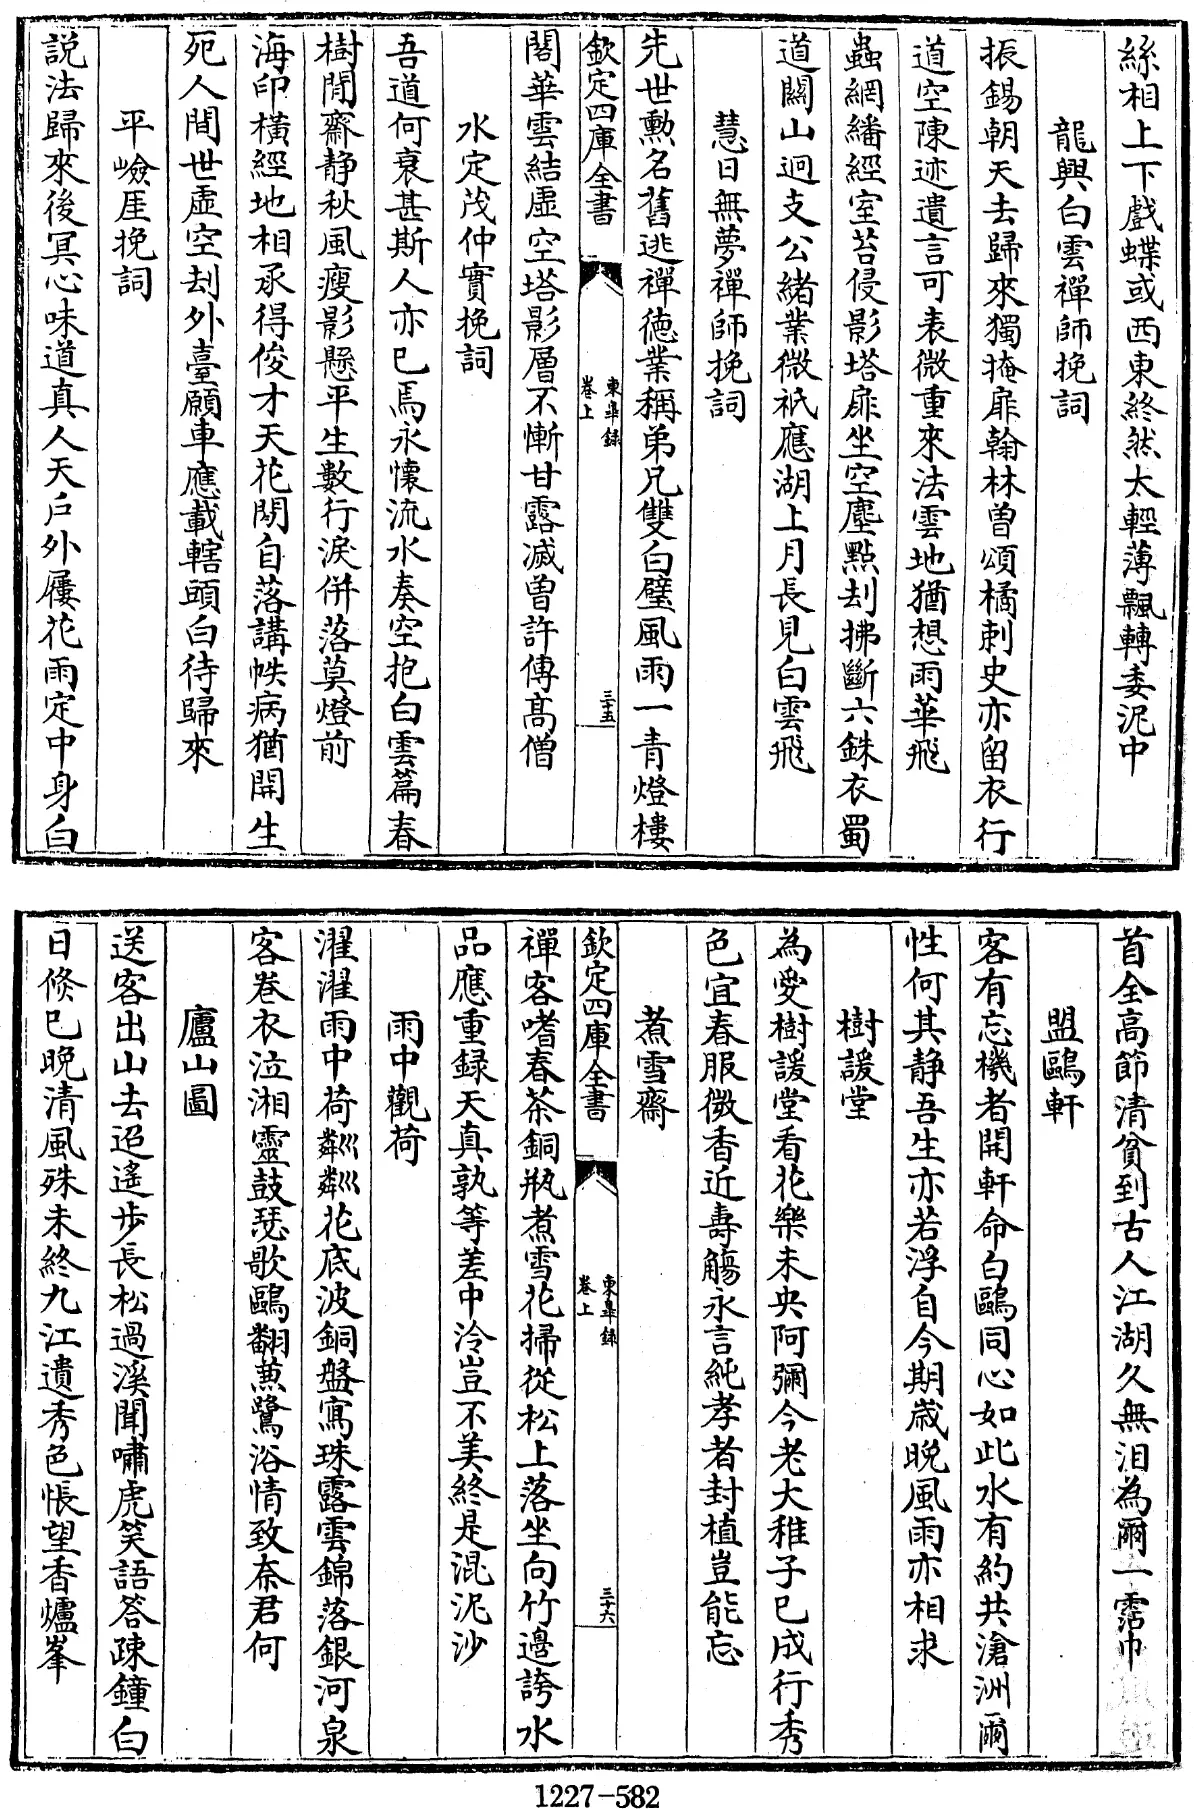 絲相上下戲蝶或西東終然太輕薄飄轉委泥中
龍興白雲禪師挽詞
振錫朝天去歸來獨掩扉翰林曾頌橘刺史亦留衣行
道空陳迹遺言可表微重來法雲地猶想雨華飛
蟲網繙經室苔侵影塔扉坐空塵點刦拂斷六銖衣蜀
道關山迥支公緒業微祇應湖上月長見白雲飛
慧日無夢禪師挽詞
先世勲名舊逃禪德業稱弟兄雙白璧風雨一青燈樓
欽定四庫全書
東臯録
卷上
三十五
閣華雲結虛空塔影層不慚甘露滅曾許傳髙僧
水定茂仲實挽詞
吾道何衰甚斯人亦已焉永懷流水奏空抱白雲篇春
樹閒齋静秋風瘦影懸平生數行淚併落莫燈前
海印橫經地相承得俊才天花閒自落講帙病猶開生
死人間世虛空刦外臺願車應載轄頭白待歸來
平嶮厓挽詞
説法歸來後冥心味道真人天戶外屨花雨定中身白
首全高節清貧到古人江湖久無淚為爾一霑巾
盟鷗軒
客有忘機者開軒命白鷗同心如此水有約共滄洲爾
性何其静吾生亦若浮自今期歲晚風雨亦相求
樹諼堂
為愛樹諼堂看花樂未央阿彌今老大稚子已成行秀
色宜春服微香近壽觴永言純孝者封植豈能忘
煮雪齋
欽定四庫全書
東臯録
卷上
三十六
禪客嗜春茶銅瓶煮雪花掃從松上落坐向竹邊誇水
品應重録天真孰等差中泠豈不美終是混泥沙
雨中觀荷
濯濯雨中荷粼粼花底波銅盤寫珠露雲錦落銀河泉
客卷衣泣湘靈鼓瑟歌鷗翻兼鷺浴情致奈君何
廬山圖
送客出山去迢遙步長松過溪聞嘯虎笑語答疎鐘白
日倏已晚清風殊未終九江遺秀色悵望香爐峯
1227-582